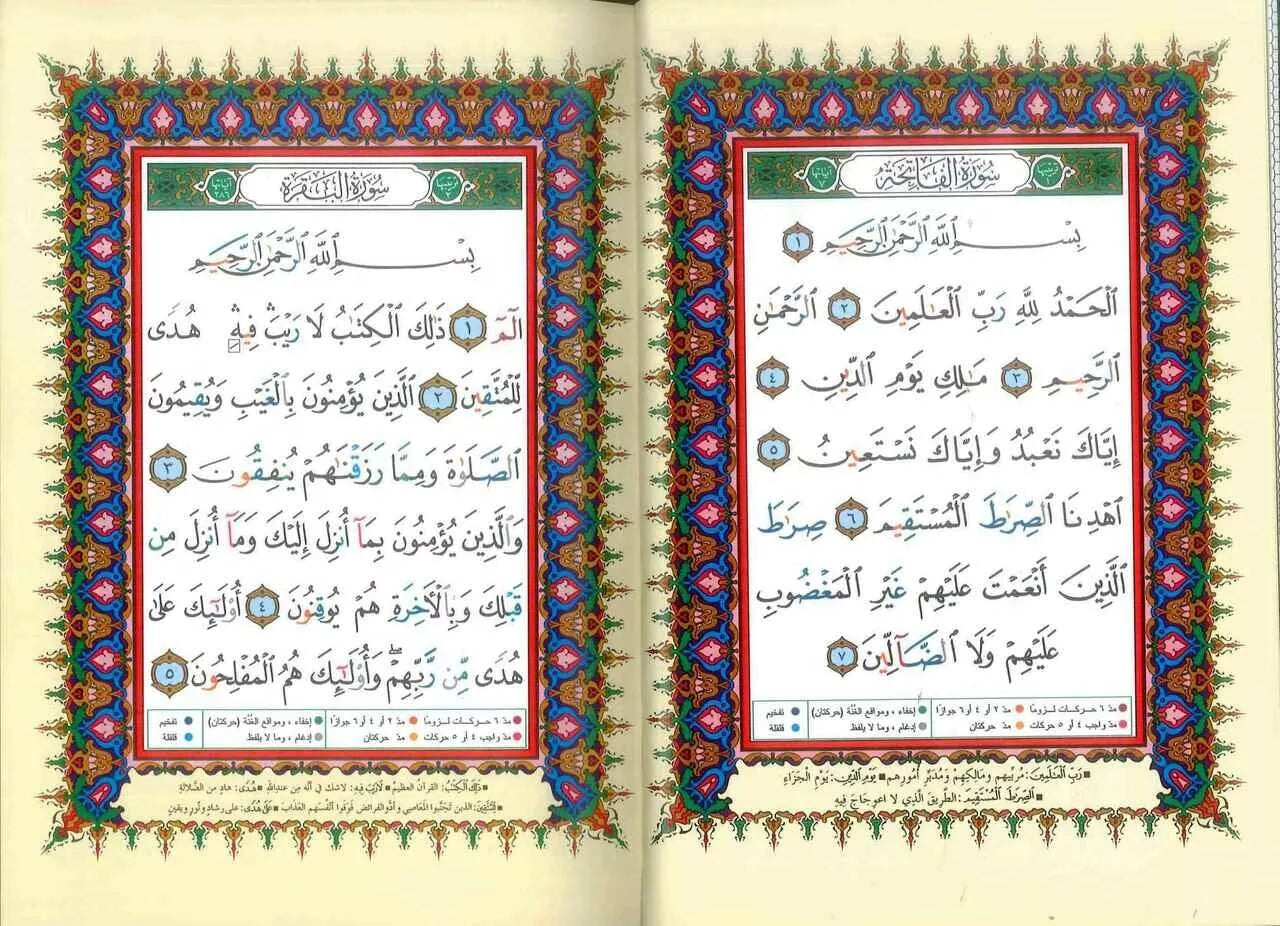 ترتيبها ١
سُورَةُ الْفَاتِحَةِ
آياتها ٧
بِسْمِ ٱللَّهِ ٱلرَّحْمَٰنِ ٱلرَّحِيمِ ١
ٱلْحَمْدُ لِلَّهِ رَبِّ ٱلْعَٰلَمِينَ ٢ ٱلرَّحْمَٰنِ
ٱلرَّحِيمِ ٣ مَٰلِكِ يَوْمِ ٱلدِّينِ ٤
إِيَّاكَ نَعْبُدُ وَإِيَّاكَ نَسْتَعِينُ ٥
ٱهْدِنَا ٱلصِّرَٰطَ ٱلْمُسْتَقِيمَ ٦ صِرَٰطَ
ٱلَّذِينَ أَنْعَمْتَ عَلَيْهِمْ غَيْرِ ٱلْمَغْضُوبِ
عَلَيْهِمْ وَلَا ٱلضَّآلِّينَ ٧
مدّ ٦ حركات لزومًا مدّ ٢ أو ٤ أو ٦ جوازًا إخفاء ، ومواقع الغُنَّة (حركتان) تفخيم
مدّ واجب ٤ أو ٥ حركات مدّ حركتان إدغام ، وما لا يلفظ قلقلة
رَبِّ ٱلْعَٰلَمِينَ: مُرَبِّيهم ومَالِكِهم ومُدَبِّرِ أُمُورِهم يَوْمِ ٱلدِّينِ: يَوْمِ الْجَزَاءِ
ٱلصِّرَٰطَ ٱلْمُسْتَقِيمَ: الطَّرِيقَ الَّذِي لا اعوجَاجَ فِيهِ
ترتيبها ٢
سُورَةُ الْبَقَرَةِ
آياتها ٢٨٦
بِسْمِ ٱللَّهِ ٱلرَّحْمَٰنِ ٱلرَّحِيمِ
الٓمٓ ١ ذَٰلِكَ ٱلْكِتَٰبُ لَا رَيْبَۛ فِيهِۛ هُدًى
لِّلْمُتَّقِينَ ٢ ٱلَّذِينَ يُؤْمِنُونَ بِٱلْغَيْبِ وَيُقِيمُونَ
ٱلصَّلَوٰةَ وَمِمَّا رَزَقْنَٰهُمْ يُنفِقُونَ ٣
وَٱلَّذِينَ يُؤْمِنُونَ بِمَآ أُنزِلَ إِلَيْكَ وَمَآ أُنزِلَ مِن
قَبْلِكَ وَبِٱلْأَخِرَةِ هُمْ يُوقِنُونَ ٤ أُو۟لَٰٓئِكَ عَلَىٰ
هُدًى مِّن رَّبِّهِمْۖ وَأُو۟لَٰٓئِكَ هُمُ ٱلْمُفْلِحُونَ ٥
مدّ ٦ حركات لزومًا مدّ ٢ أو ٤ أو ٦ جوازًا إخفاء ، ومواقع الغُنَّة (حركتان) تفخيم
مدّ واجب ٤ أو ٥ حركات مدّ حركتان إدغام ، وما لا يلفظ قلقلة
ذَٰلِكَ ٱلْكِتَٰبُ: القرآنُ العظيمُ لَا رَيْبَ فِيهِ: لا شك في أنه من عند الله هُدًى: هادٍ من الضَّلالةِ
لِّلْمُتَّقِينَ: الذين تجنَّبوا المعاصي وأدَّوا الفرائضَ فوَقَوا أنفسَهم العذابَ عَلَىٰ هُدًى: على رشادٍ ونُورٍ ويقينٍ